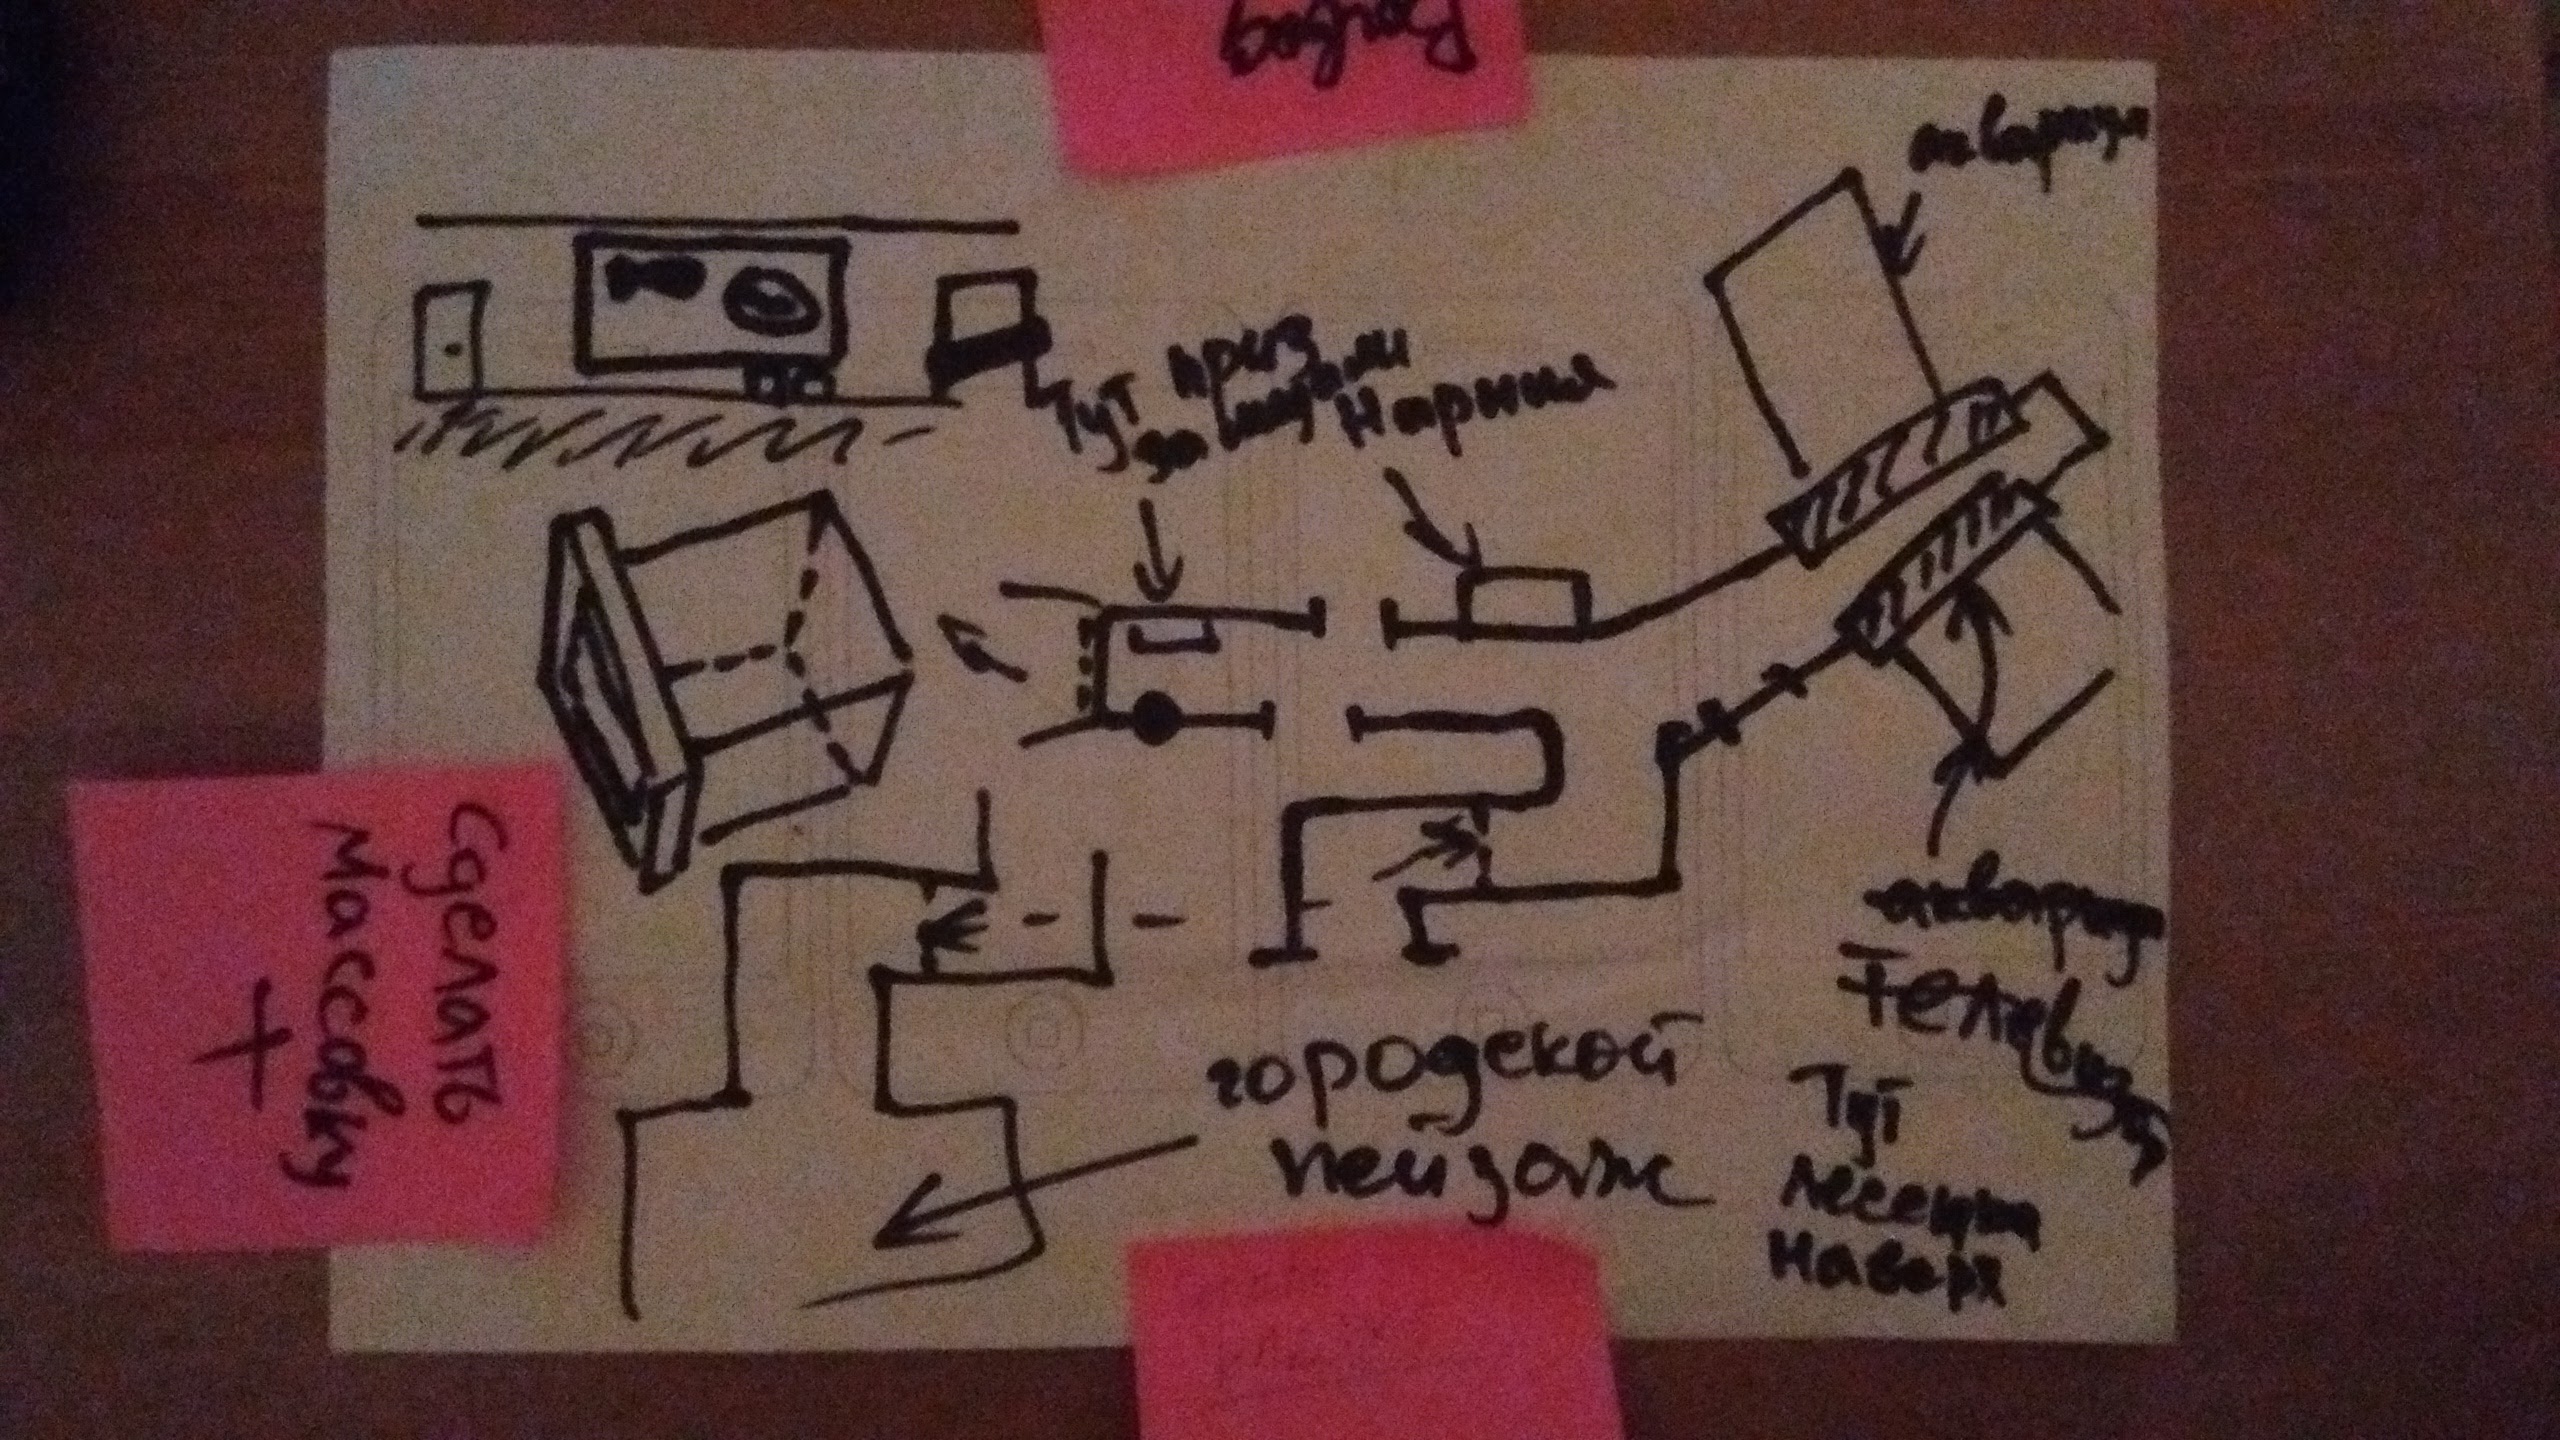 аквариум
Тут през
за шторами
Нарния
аквариум
Телевизор
Тут
лесенка
наверх
городской
пейзаж
Сделать
Массовку
+